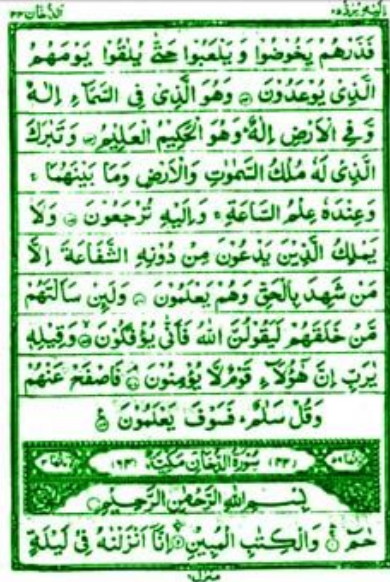 اليه يرد ٢٥
الدخان ٤٤
فَذَرْهُمْ يَخُوضُوْا وَ يَلْعَبُوْا حَتّٰى يُلٰقُوْا يَوْمَهُمُ
الَّذِىْ يُوْعَدُوْنَ ۝ وَهُوَ الَّذِىْ فِى السَّمَآءِ اِلٰهٌ
وَّ فِى الْاَرْضِ اِلٰهٌ ؕ وَهُوَ الْحَكِيْمُ الْعَلِيْمُ ۝ وَتَبٰرَكَ
الَّذِىْ لَهٗ مُلْكُ السَّمٰوٰتِ وَالْاَرْضِ وَمَا بَيْنَهُمَا ۚ
وَعِنْدَهٗ عِلْمُ السَّاعَةِ ۚ وَاِلَيْهِ تُرْجَعُوْنَ ۝ وَلَا
يَمْلِكُ الَّذِيْنَ يَدْعُوْنَ مِنْ دُوْنِهِ الشَّفَاعَةَ اِلَّا
مَنْ شَهِدَ بِالْحَقِّ وَهُمْ يَعْلَمُوْنَ ۝ وَلَئِنْ سَاَلْتَهُمْ
مَّنْ خَلَقَهُمْ لَيَقُوْلُنَّ اللّٰهُ فَاَنّٰى يُؤْفَكُوْنَ ۝ وَقِيْلِهٖ
يٰرَبِّ اِنَّ هٰٓؤُلَآءِ قَوْمٌ لَّا يُؤْمِنُوْنَ ۝ فَاصْفَحْ عَنْهُمْ
وَقُلْ سَلٰمٌ ؕ فَسَوْفَ يَعْلَمُوْنَ ۝
(٤٤) سُوْرَةُ الدُّخَانِ مَكِّيَّةٌ (٦٤)
بِسْمِ اللّٰهِ الرَّحْمٰنِ الرَّحِيْمِ
حٰمٓ ۝ وَالْكِتٰبِ الْمُبِيْنِ ۝ اِنَّاۤ اَنْزَلْنٰهُ فِىْ لَيْلَةٍ
منزل